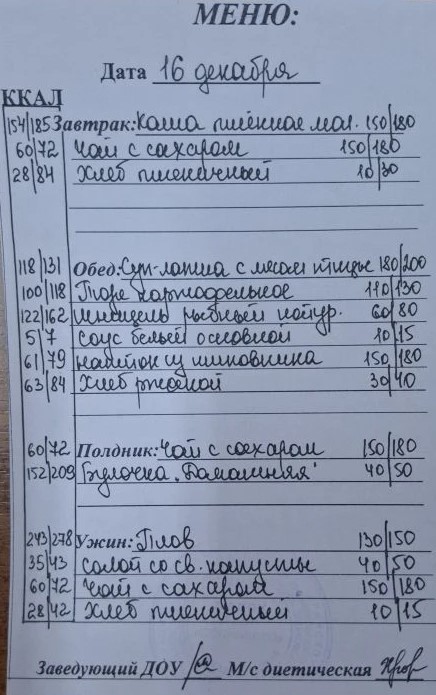 МЕНЮ:
Дата 16 декабря
ККАЛ
154/185 Завтрак: Каша пшённая мол. 150/180
60/72 Чай с сахаром 150/180
28/84 Хлеб пшеничный 10/30
118/131 Обед: Суп-лапша с мясом птицы 180/200
100/118 Пюре картофельное 110/130
122/162 Шницель рыбный натур. 60/80
5/7 соус белый основной 10/15
61/79 напиток из шиповника 150/180
63/84 Хлеб ржаной 30/40
60/72 Полдник: Чай с сахаром 150/180
152/209 Булочка "Домашняя" 40/50
243/278 Ужин: Плов 130/150
35/43 салат со св. капусты 40/50
60/72 Чай с сахаром 150/180
28/42 Хлеб пшеничный 10/15
Заведующий ДОУ М/с диетическая